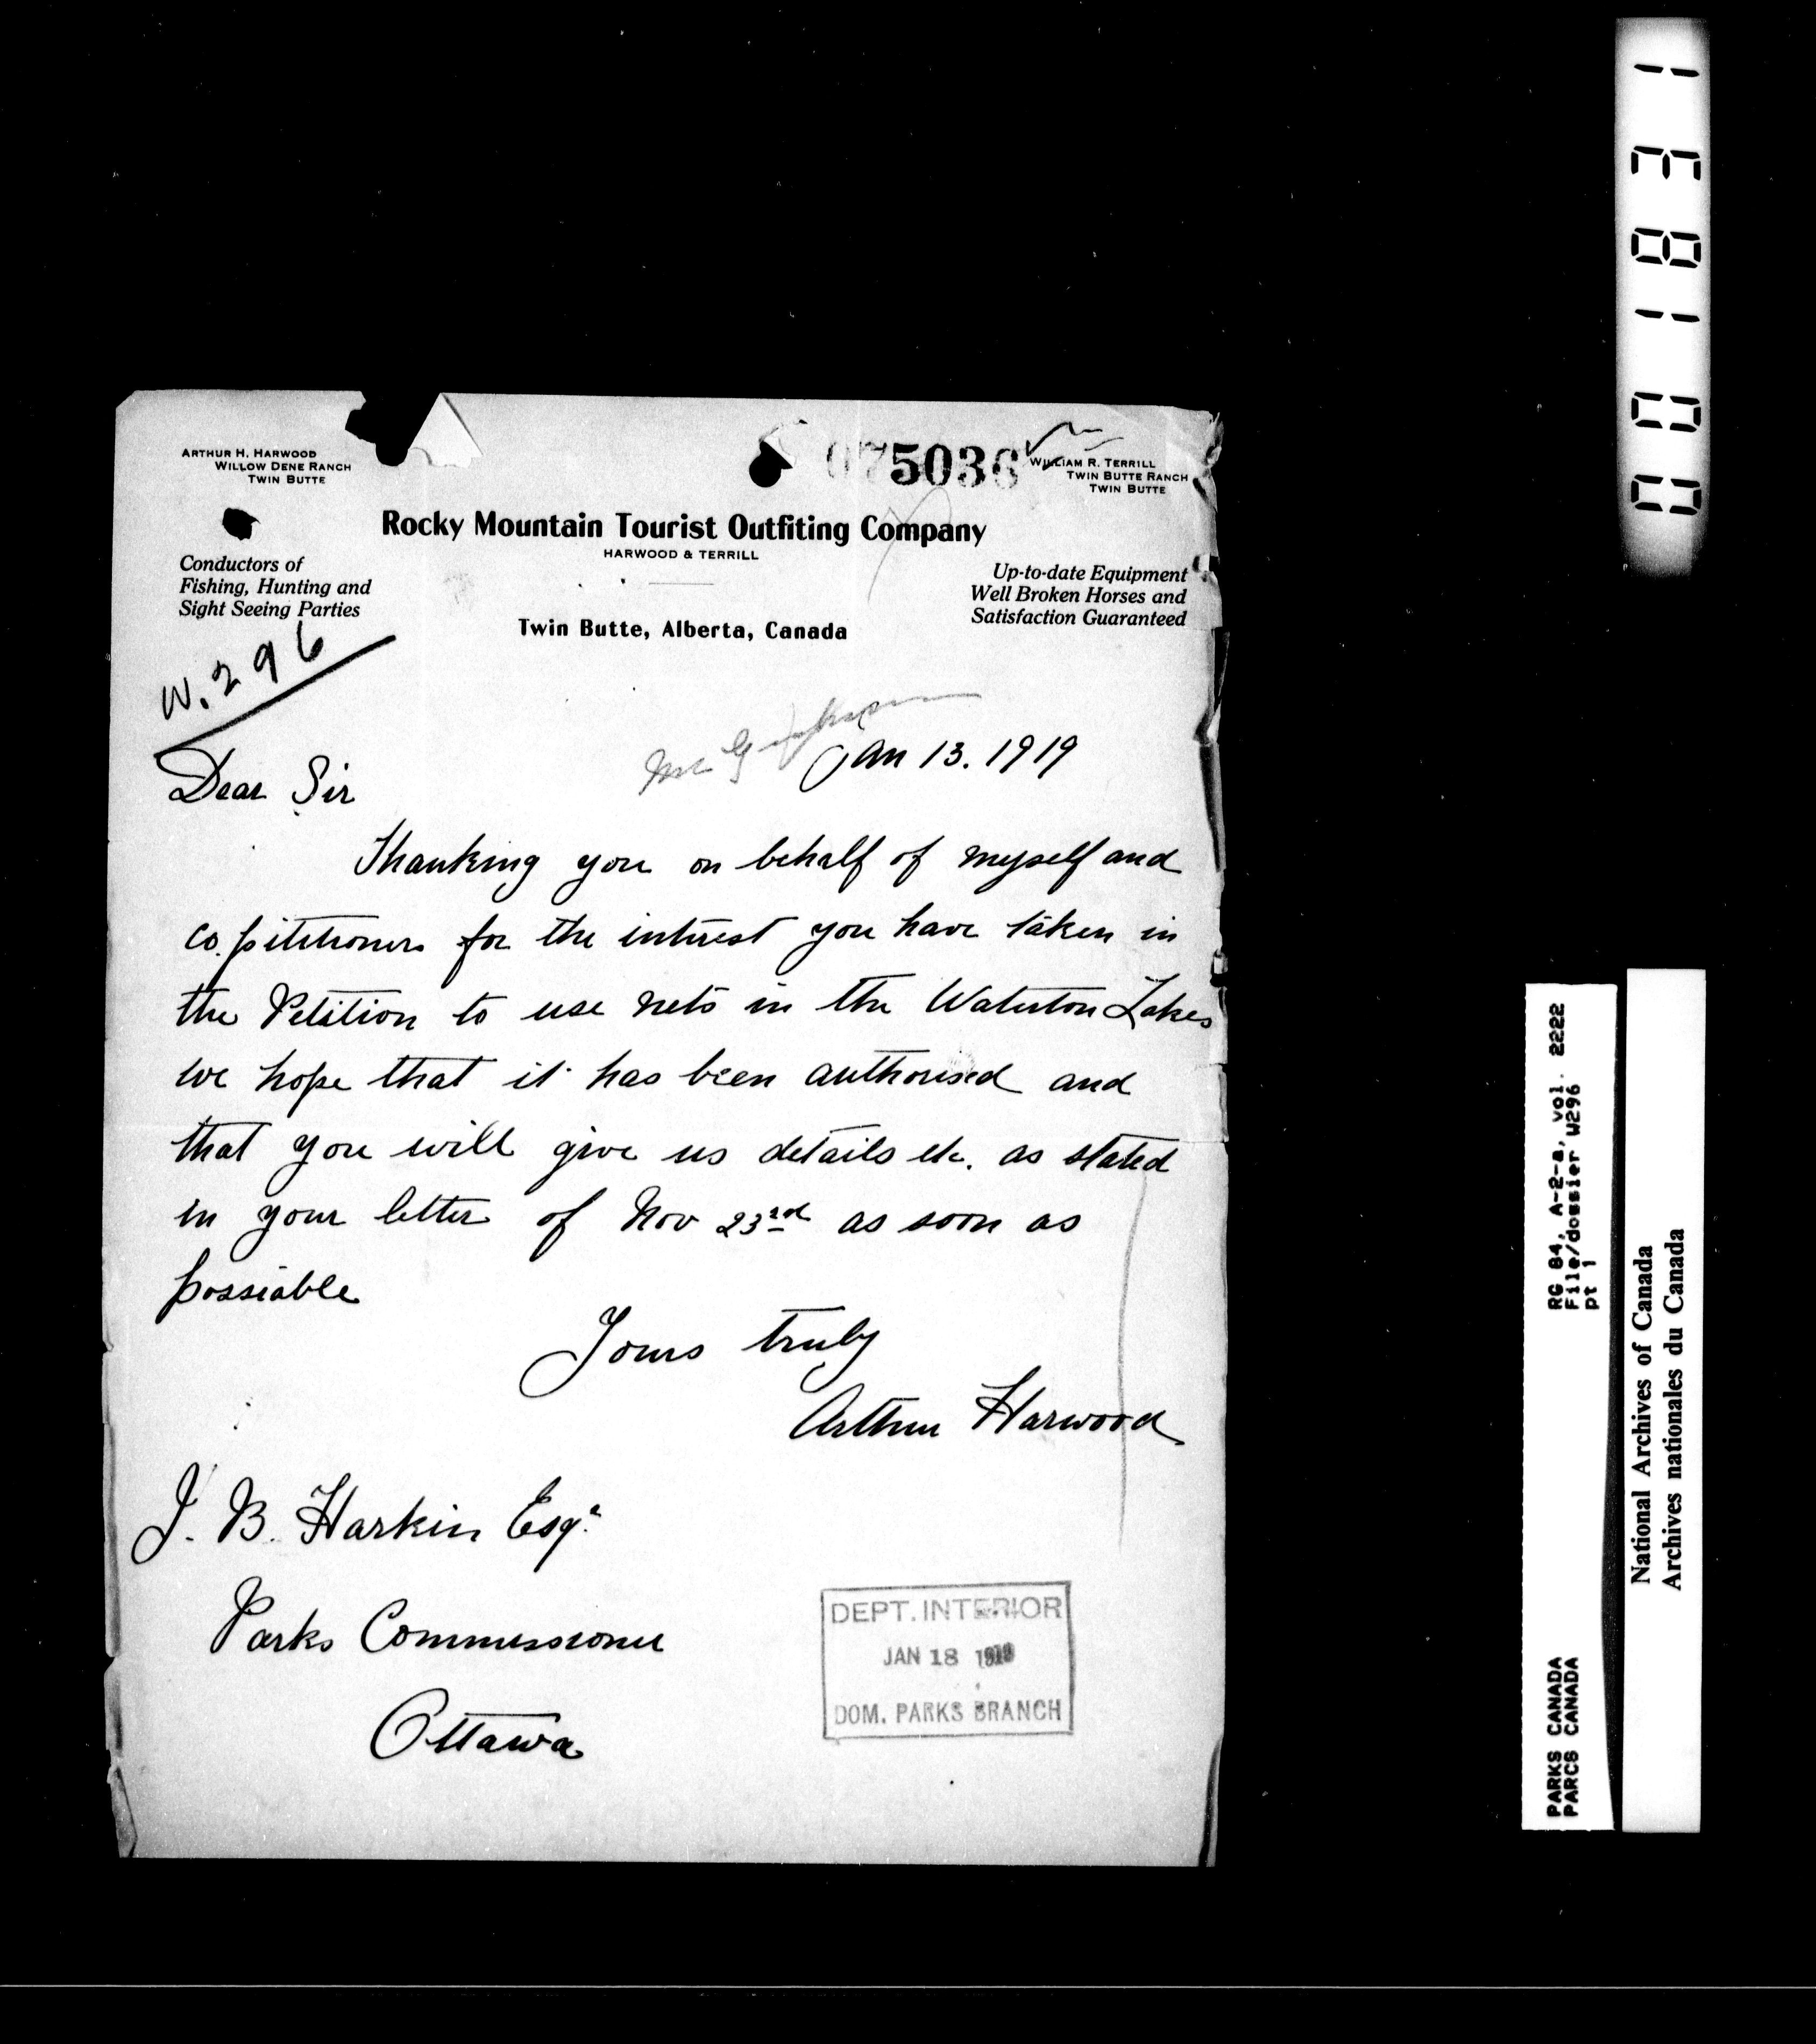 ARTHUR H. HARWOOD
WILLOW DENE RANCH
TWIN BUTTE
075036
WILLIAM R. TERRILL
TWIN BUTTE RANCH
TWIN BUTTE
Rocky Mountain Tourist Outfiting Company
HARWOOD & TERRILL
Conductors of
Fishing, Hunting and
Sight Seeing Parties
Up-to-date Equipment
Well Broken Horses and
Satisfaction Guaranteed
Twin Butte, Alberta, Canada
W. 296
Jan 13. 1919
Dear Sir
Thanking you on behalf of myself and
co. petitioners for the interest you have taken in
the Petition to use nets in the Waterton Lakes
we hope that it has been authorised and
that you will give us details etc. as stated
in your letter of Nov 23rd as soon as
possiable
Yours truly
Arthur Harwood
J. B. Harkin Esqr
Parks Commissioner
Ottawa
DEPT. INTERIOR
JAN 18 1919
DOM. PARKS BRANCH
001831
RG 84, A-2-a, vol. 2222
File/dossier W296
pt 1
PARKS CANADA
PARCS CANADA
National Archives of Canada
Archives nationales du Canada